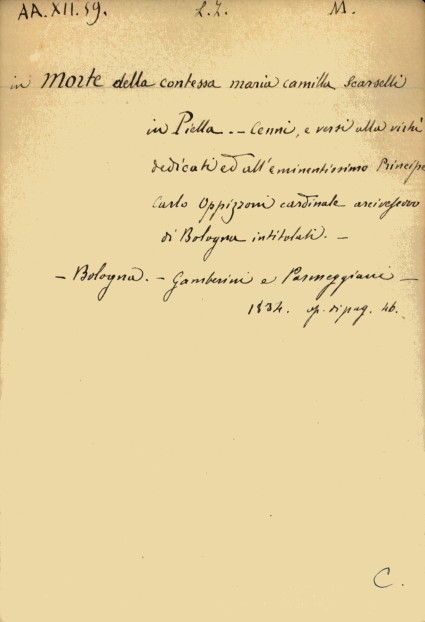 AA.XII.59. L.Z. M.
in Morte della contessa maria camilla Scarselli
in Piella. - Cenni, e versi alla virtù
dedicati ed all'eminentissimo Principe
Carlo Oppizzoni cardinale arcivescovo
di Bologna intitolati. -
- Bologna. - Gamberini e Parmeggiani -
1834. op. di pag. 46.
C.